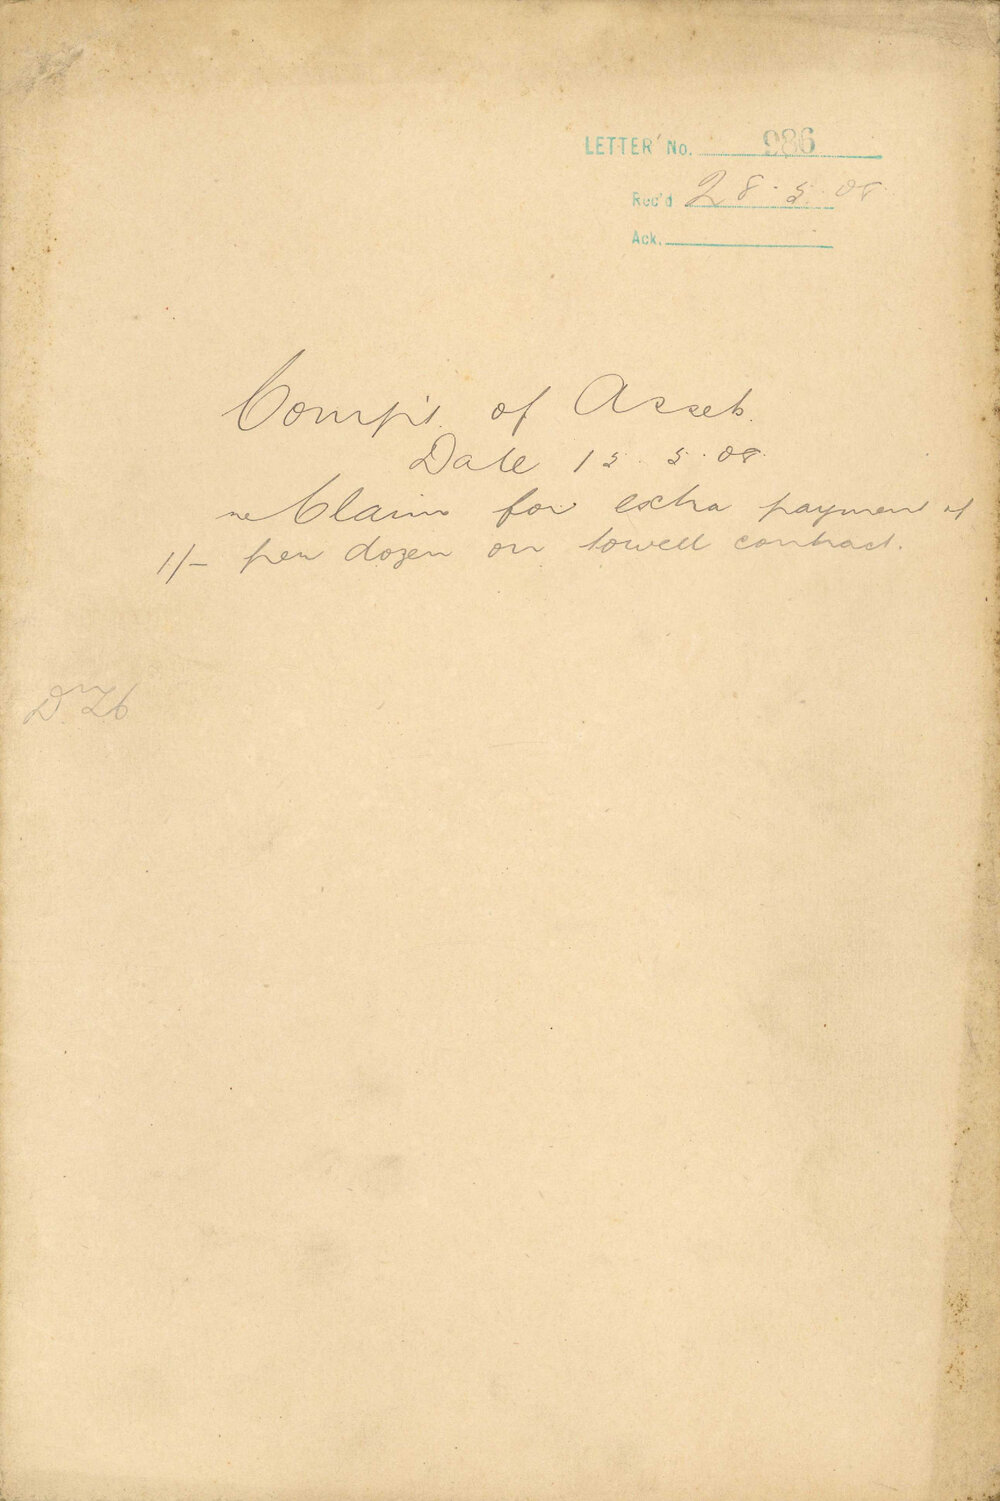 LETTER No. 986
Rec'd 28.5.08
Ack.
Comp't of Assets
Date 15.5.08
re Claim for extra payment of
1/- per dozen on towell contract.